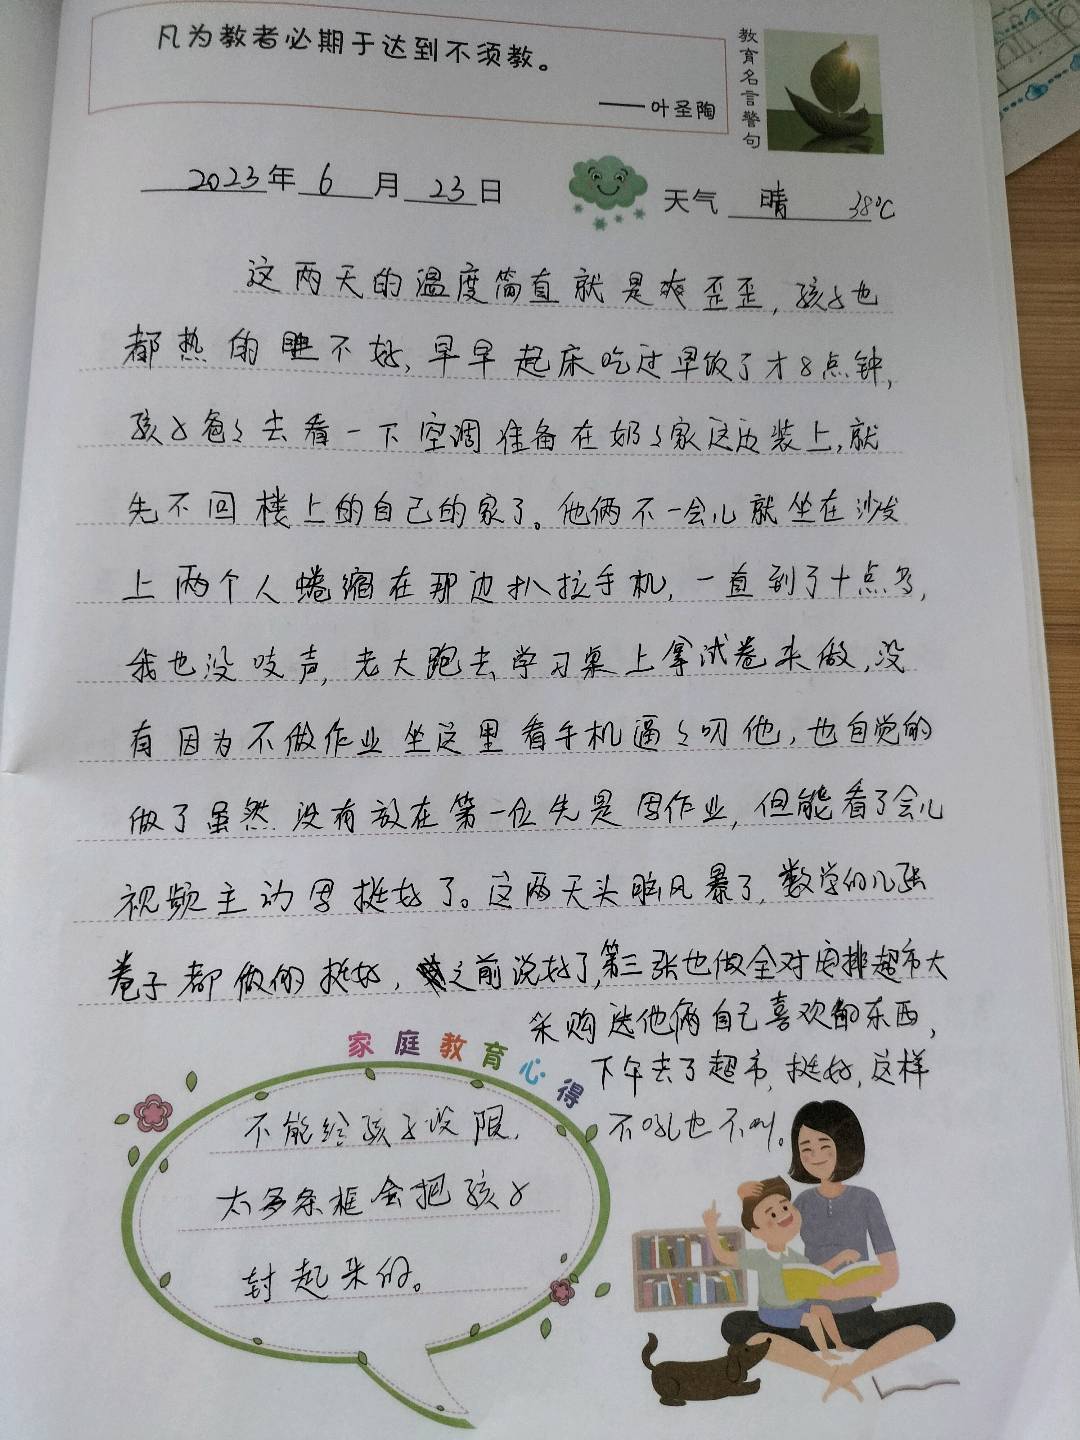 凡为教者必期于达到不须教。
——叶圣陶
教育名言警句
2023年 6 月 23 日
天气 晴 38℃
这两天的温度简直就是爽歪歪,孩子也
都热的睡不好,早早起床吃过早饭了才8点钟,
孩子爸爸去看一下空调准备在奶奶家这边装上,就
先不回楼上的自己的家了。他俩不一会儿就坐在沙发
上两个人蜷缩在那边扒拉手机,一直到了十点多,
我也没吱声,老大跑去学习桌上拿试卷来做,没
有因为不做作业坐这里看手机逼逼叨他,也自觉的
做了虽然没有放在第一位先是写作业,但能看了会儿
视频主动写挺好了。这两天头脑风暴了,数学的几张
卷子都做的挺好,之前说好了,第三张也做全对安排超市大
采购选他俩自己喜欢的东西,
下午去了超市,挺好,这样
不吼也不叫。
家庭教育心得
不能给孩子设限,
太多条框会把孩子
封起来的。